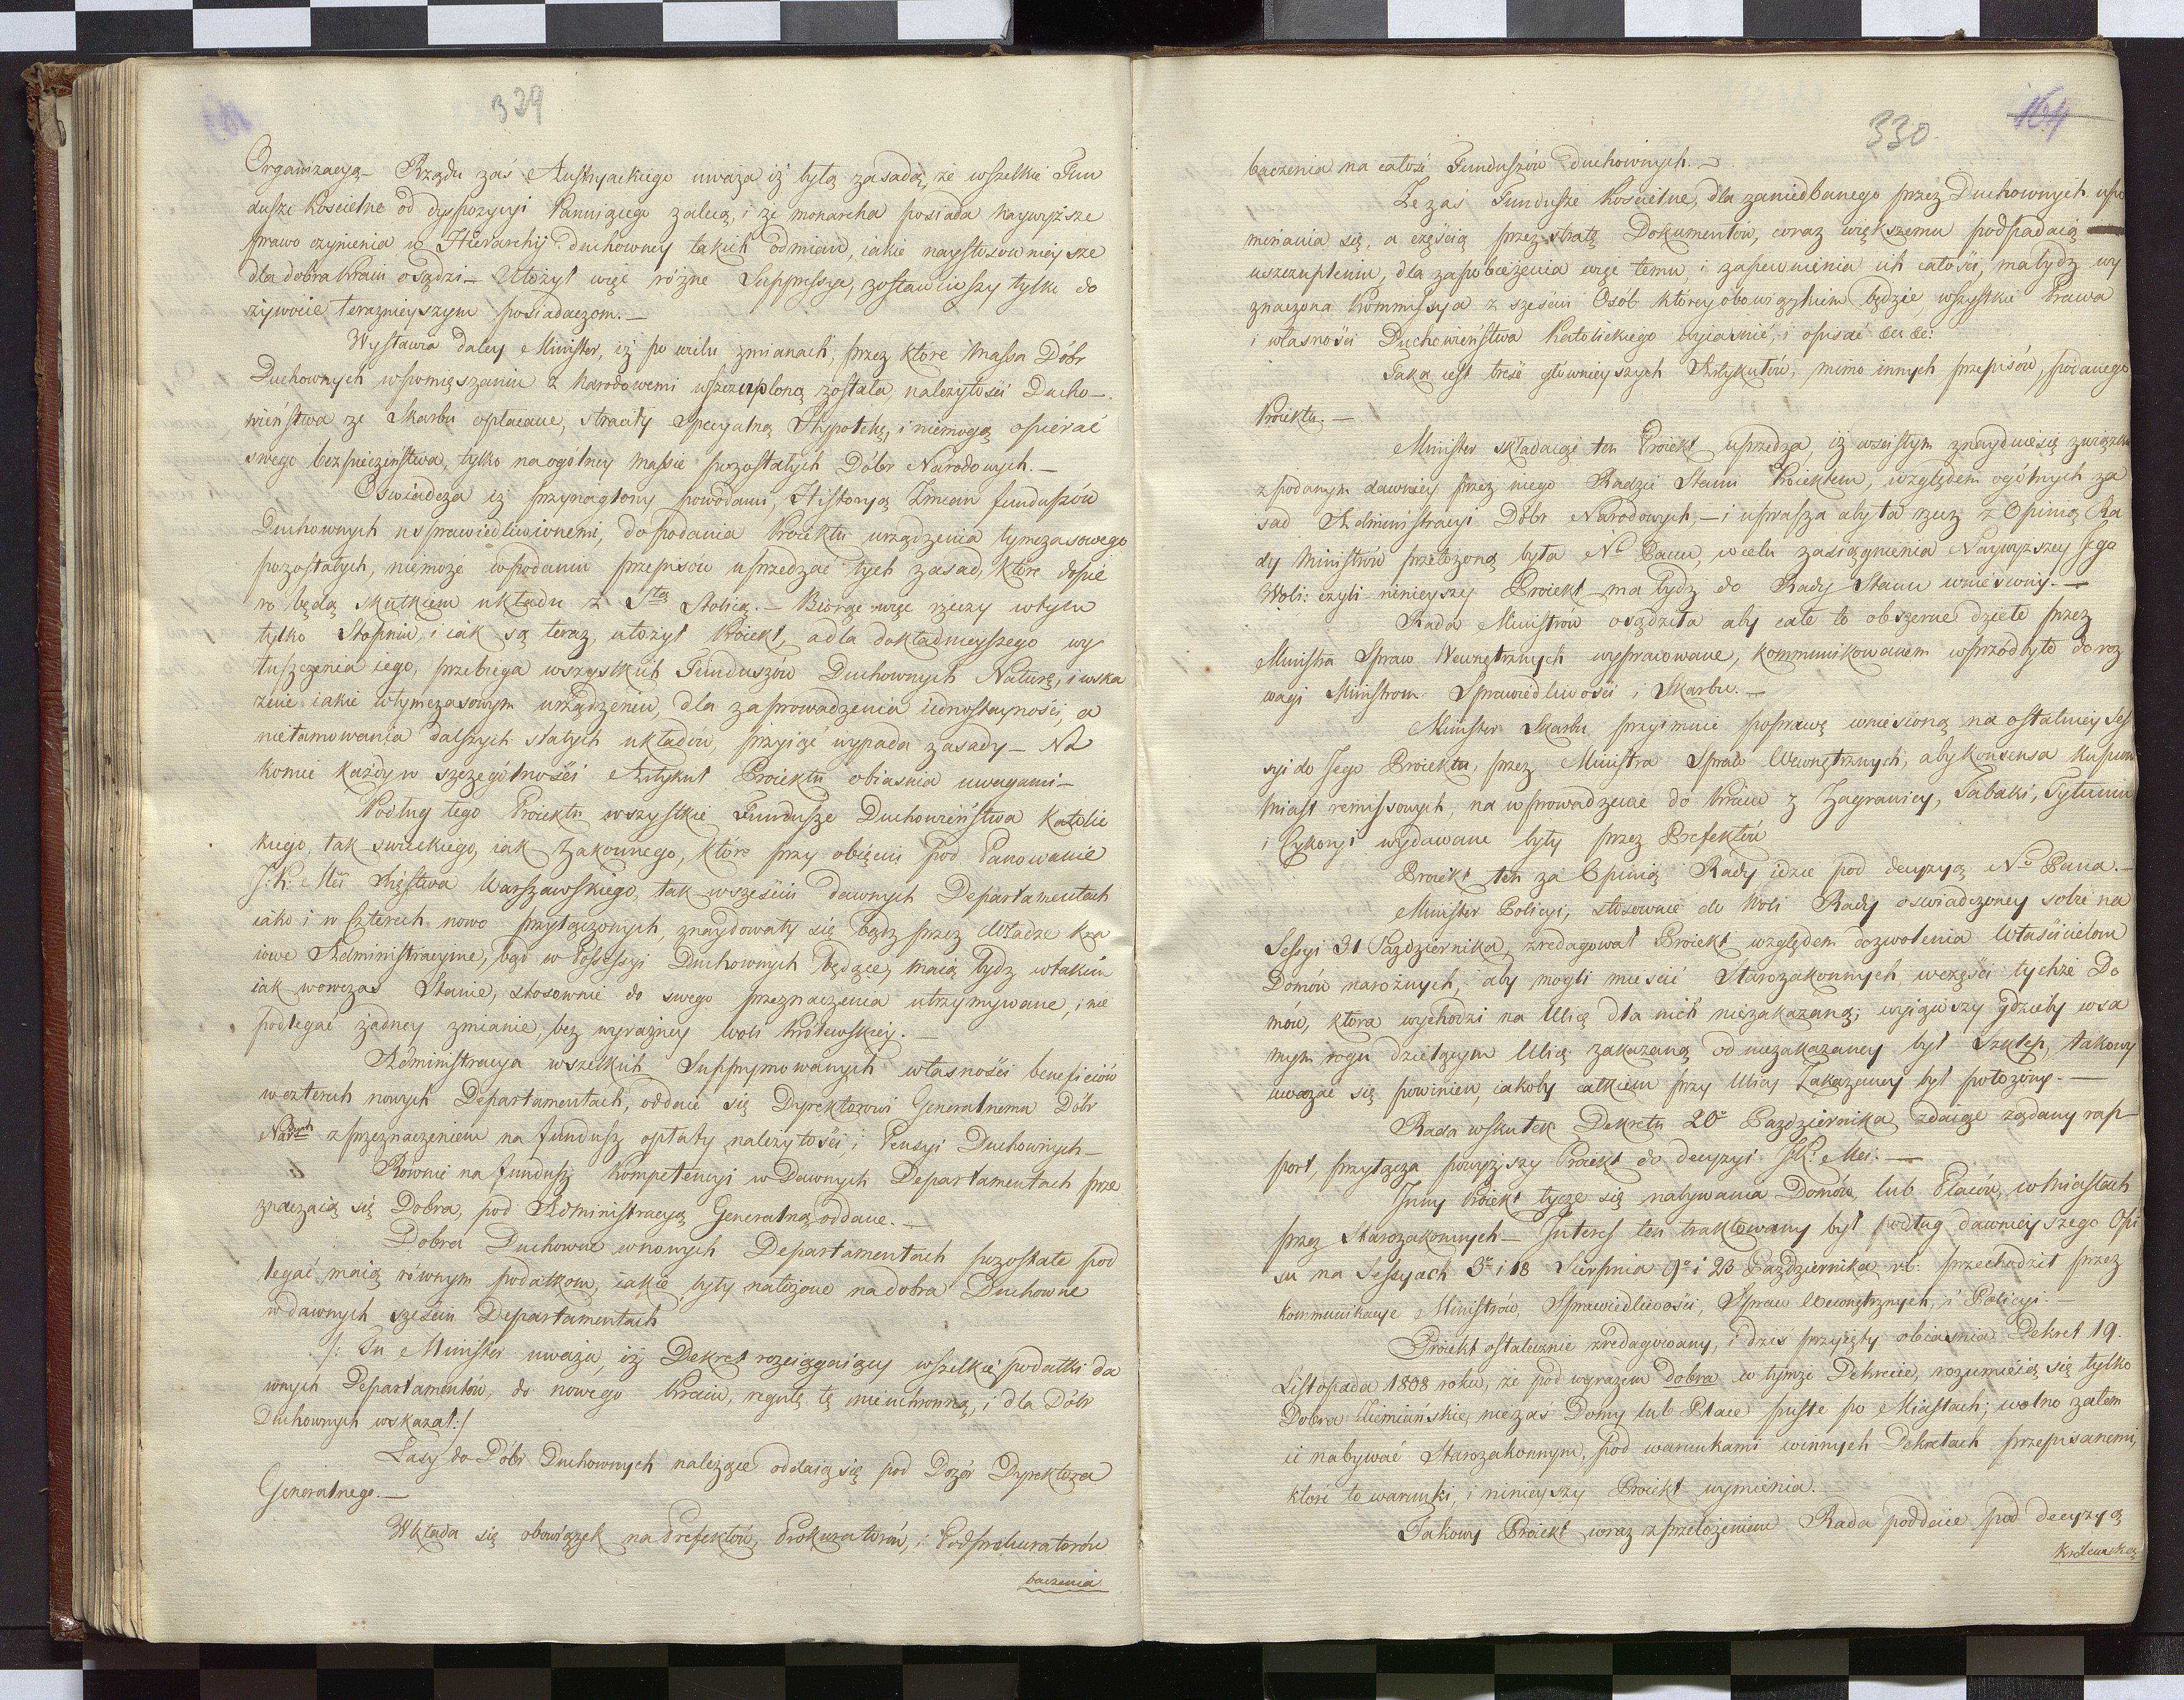 329
Organizacyą – Rządu zaś Austryackiego uważa iż byłą zasadą, że wszelkie Fun
dusze Koscielne od dyspozycyi Panuiącego zalezą, i że monarcha posiada naywyższe
prawo czynienia w Hierarchij duchowney takich odmian, iakie naystosownieysze
dla dobra kraiu osądzi – Ułożył więc różne Suppressye, zostawiwszy tylko do
żywocie teraznieyszym posiadaczom. –
Wystawia daley Minister, iż po wielu zmianach, przez które Massa Dóbr
Duchownych w pomięszaniu z Narodowemi uszczuploną została, należytości Ducho–
wieństwa ze Skarbu opłacane, straciły Specyalną Hypotekę, i niemogą opierać
swego bezpieczeństwa, tylko na ogólney Massie pozostałych Dóbr Narodowych. –
Oswiadcza iż przynaglony powodami, Historyą Zmian funduszów
Duchownych usprawiedliwionemi, do podania Proiektu urządzenia tymczasowego
pozostałych, niemoże w podaniu przepisów uprzedzać tych zasad, które dopie
ro będą skutkiem układu z Stą Stolicą. – Biorąc więc rzeczy w tym
tylko Stopniu, i iak są teraz, ułożył Proiekt, a dla dokładnieyszego wy
tuszczenia iego, przebiega wszystkich Funduszów Duchownych Naturę, i wska
zuie iakie w tymczasowym urządzeniu, dla zaprowadzenia iednostayności, a
nietamowania dalszych stałych układów, przyiąć wypada zasady – Na
koniec każdy w szczególności Artykuł Proiektu obiasnia uwagami –
Podług tego Proiektu wszystkie Fundusze Duchowieństwa Katolic
kiego, tak swieckiego, iak Zakonnego, które przy obięciu pod Panowanie
J: K: Mci Xięstwa Warszawskiego, tak w sześciu dawnych Departamentach
iako i w Czterech nowo przyłączonych, znaydowały się bądź przez Władze Kra
iowe Administracyine, bąd w Possessyi Duchownych będące, maią bydz w takim
iak wowczas Stanie, stosownie do swego przeznaczenia utrzymywane, i nie
podlegać żadney zmianie, bez wyraźney woli Królewskiey. –
Administracya wszelkich Supprymowanych własności beneficiów
w czterech nowych Departamentach, oddaie się Dyrektorowi Generalnemu Dóbr
Narodwch z przeznaczeniem na fundusz opłaty należytości, i Pensyi Duchownych –
Równie na fundusz Kompetencyi w Dawnych Departamentach prze
znaczaią się Dobra, pod Administracyą Generalną oddane. –
Dobra Duchowne w nowych Departamentach pozostałe pod
legać maią równym podatkom, iakie były nałożone na dobra Duchowne
w dawnych sześciu Departamentach
/: Tu Minister uważa, iż Dekret rozciągaiący wszelkie podatki da
wnych Departamentów, do nowego Kraiu, regułę tę nieuchronną, i dla Dóbr
Duchownych wskazał :/
Lasy do Dóbr Duchownych należące oddaią się pod Dozór Dyrektora
Generalnego. –
Wkłada się obowiązek na Prefektów, Prokuratorów, i Podprokuratorów
baczenia
164
330.
baczenia na całość Funduszów duchownych. –
Że zaś Fundusze Koscielne, dla zaniedbanego przez Duchownych upo
minania się, a częścią przez stratę Dokumentów, coraz większemu podpadaią
uszczupleniu, dla zapobieżenia więc temu i zapewnienia ich całości, ma bydz wy
znaczona Kommissya z sześciu Osób którey obowiązkiem będzie, wszystkie Prawa
i własności Duchowieństwa Katolickiego wyiasnić, i opisać &c &c:
Taka iest treść głownieyszych Artykułów, mimo innych przepisów, podanego
Proiektu. –
Minister składaiąc ten Proiekt uprzedza, iż w scisłym znayduie się związku
z podanym dawniey przez niego Radzie Stanu Proiektem, względem ogólnych za
sad Administracyi Dóbr Narodowych, – i uprasza aby ta rzecz z Opinią Ra
dy Ministrów przełożoną była No Panu, w celu zasiągnienia Naywyższey Jego
Woli: czyli ninieyszy Proiekt ma bydz do Rady Stanu wniesiony. –
Rada Ministrów osądziła aby całe to obszerne dzieło przez
Ministra Spraw Wewnętrznych wypracowane, kommunikowanem w przód było do roz
wagi Ministrom Sprawiedliwości i Skarbu. –
Minister Skarbu przyimuie poprawę wniesioną na ostatniey Ses
syi do Jego Proiektu, przez Ministra Spraw Wewnętrznych, aby konsensa kupcom
Miast remissowych, na wprowadzenie do kraiu z Zagranicy, Tabaki, Tytuniu
i Cykoryi wydawane były przez Prefektów
Proiekt ten za Opinią Rady idzie pod decyzyą No Pana. –
Minister Policyi, stosownie do Woli Rady oswiadczoney sobie na
Sessyi 31 Pazdziernika, zredagował Proiekt względem dozwolenia Właścicielom
Domów narożnych, aby mogli mieścić Starozakonnych, w części tychże Do
mów, która wychodzi na Ulicę dla nich niezakazaną; wyiąwszy gdzieby w sa
mym rogu dzielącym Ulicę zakazaną od niezakazaney był Szklep, takowy
uważać się powinien, iakoby całkiem przy Ulicy Zakazaney był położony. –
Rada w skutek Dekretu 20o Pazdziernika zdaiąc żądany rap–
port, przyłącza powyższy Proiekt do decyzyi JK: Mci: –
Inny Proiekt tycze się nabywania Domów lub Placów w Miastach
przez Starozakonnych – Interes ten traktowany był podług dawnieyszego Opi
su na Sessyach 3o i 18 Sierpnia 9o i 23 Pazdziernika r.b: przechodził przez
kommunikacye Ministrów, Sprawiedliwości, Spraw Wewnętrznych, i Policyi –
Proiekt ostatecznie zredagowany, i dziś przyięty obiasnia Dekret 19.
Listopada 1808 roku, że pod wyrazem dobra w tymże Dekrecie, rozumieią się tylko
Dobra Ziemiańskie, nie zaś Domy lub Place puste po Miastach; wolno zatem
ie nabywać Starozakonnym, pod warunkami w innych Dekretach przepisanemi,
które to warunki, i ninieyszy Proiekt wymienia. –
Takowy Proiekt wraz z przełożeniem Rada poddaie pod decyzyą
Królewską